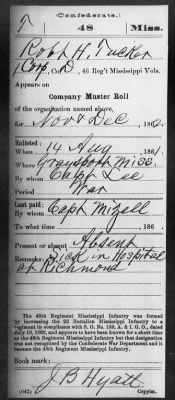 (Confederate.)
T 48 Miss.
Robt H. Tucker
Corp, Co. D, 48 Reg't Mississippi Vols.
Appears on
Company Muster Roll
of the organization named above,
for Nov & Dec, 186
Enlisted:
When 14 Aug, 1861.
Where Graysport Miss.
By whom Capt Lee
Period War
Last paid:
By whom Capt Mizell
To what time , 186 .
Present or absent Absent
Remarks: Sick in Hospital
at Richmond
The 48th Regiment Mississippi Infantry was
formed by increasing the 2d Battalion Mississippi Infantry to a
regiment in compliance with S. O. No. 159, A. I. G. O., dated
July 10, 1862, and appears to have been known for a short time
as the 49th Regiment Mississippi Infantry but that designation
was not recognized by the Confederate War Department and it
became the 48th Regiment Mississippi Infantry.
Book mark:
(642) J B Hyatt
Copyist.